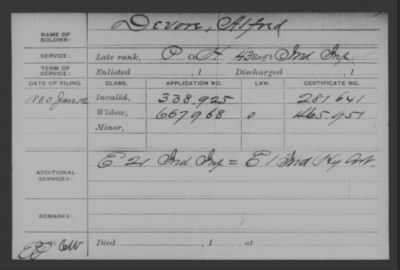 NAME OF SOLDIER: Devore, Alfred
SERVICE: Late rank, P. Co. H, 43 Reg't Ind Inf
TERM OF SERVICE: Enlisted , 1 Discharged , 1
DATE OF FILING. CLASS. APPLICATION NO. LAW. CERTIFICATE NO.
1880 Jan Invalid, 338.925 281641
Widow, 667968 465.951
Minor,
ADDITIONAL SERVICES: E 21 Ind Inf = E 1 Ind Hy Art.
REMARKS:
Died , 1 , at